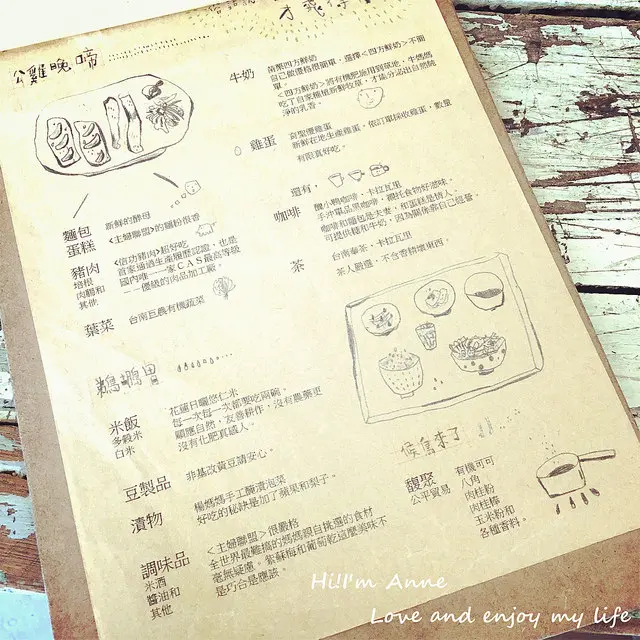 公雞晚啼
麵包
蛋糕
新鮮的酵母
<主婦聯盟>的麵粉很香
豬肉
培根
肉腸和
其他
<信功豬肉>超好吃
首家通過生產履歷認證，也是
國內唯一一家CAS最高等級
--優級的肉品加工廠。
葉菜
台南巨農有機蔬菜
牛奶
苗栗四方鮮奶
自己做優格很簡單，選擇<四方鮮奶>不簡單。
<四方鮮奶>將有機肥施用到草地，牛媽媽
吃了自家種植新鮮牧草，才能分泌出自然純
淨的乳香。
雞蛋
新鮮在地生產雞蛋，依訂單採收雞蛋，數量
有限真好吃。
還有，
咖啡
饞小鴨咖啡，卡拉瓦里
手沖單品黑咖啡，襯托食物好滋味。
咖啡和麵包是夫妻，和蛋糕是情人。
可提供糖和牛奶，因為關係靠自己經營
茶
台南奉茶，卡拉瓦里
茶人嚴選，不含香精壞東西。
米飯
多穀米
白米
花蓮日曬悠仁米
每一次每一次都要吃兩碗。
順應自然，友善耕作，沒有農藥更
沒有化肥真感人。
豆製品
非基改黃豆請安心。
漬物
楊媽媽手工醃漬泡菜
好吃的秘訣是加了蘋果和梨子。
調味品
米酒
醬油和
其他
<主婦聯盟>很嚴格
全世界最難搞的媽媽跟自挑選的食材
毫無疑慮。紫蘇梅和葡萄乾這麼美味不
是巧合是應該。
候鳥來了
馥聚
公平貿易
有機可可
八角
肉桂粉
肉桂棒
玉米粉和
各種香料。
Hi!I'm Anne
Love and enjoy my life